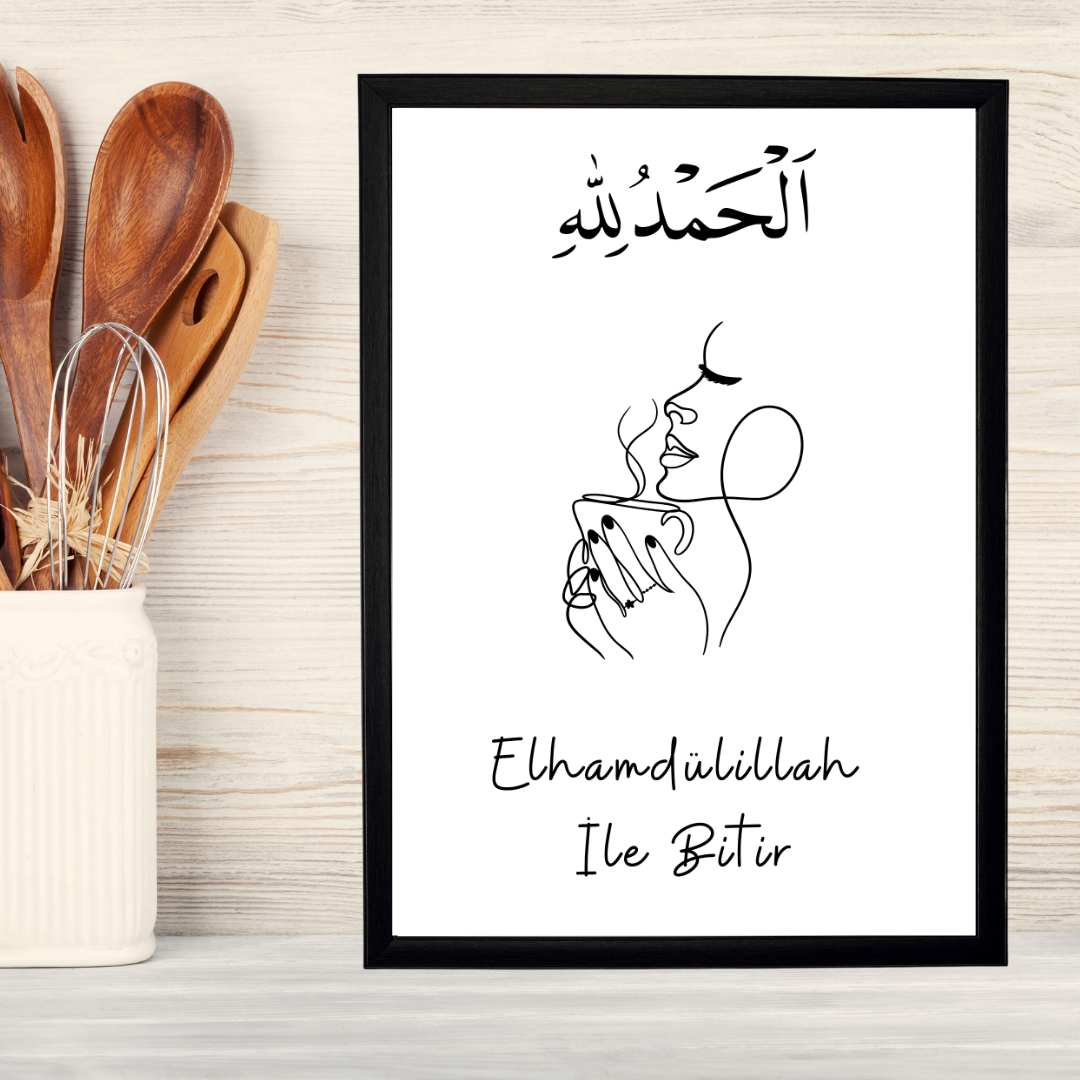 اَلْحَمْدُ لِلّٰهِ
Elhamdülillah
İle Bitir